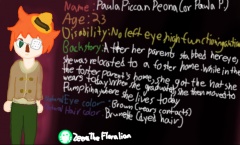 Name: Paula Piccan Peona (or Paula P.)
Age: 23
Disability: No left eye, high functioning autism
Backstory: After her parents stabbed her eye,
she was relocated to a foster home. While in the
foster parent's home, she got the hat she
wears today. After she graduated, she then moved to
Pumpkita where she lives today
Natural Eye color - Brown (wears contacts)
Natural Hair color - Brunette (dyed hair)
Zeee The Floralion